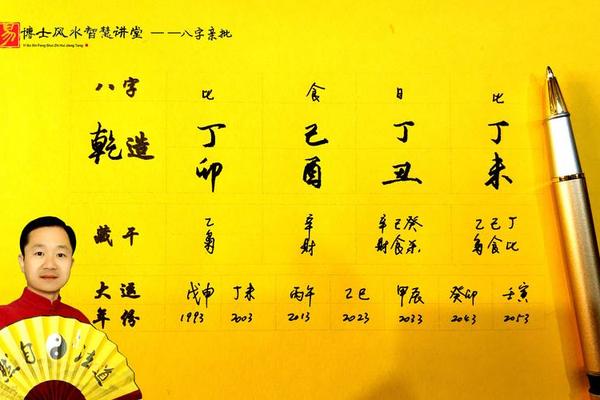 易 博士风水智慧讲堂 ——八字亲批
Yi Bo Shi Feng Shui Zhi Hui Jiang Tang
八字 比 食 日 比
乾造 丁 己 丁 丁
卯 酉 丑 未
藏干 乙 辛 辛己癸 乙己丁
枭 财 财食杀 枭食比
大运 戊申 丁未 丙午 乙巳 甲辰 癸卯 壬寅
年份 1993 2003 2013 2023 2033 2043 2053
然自法道